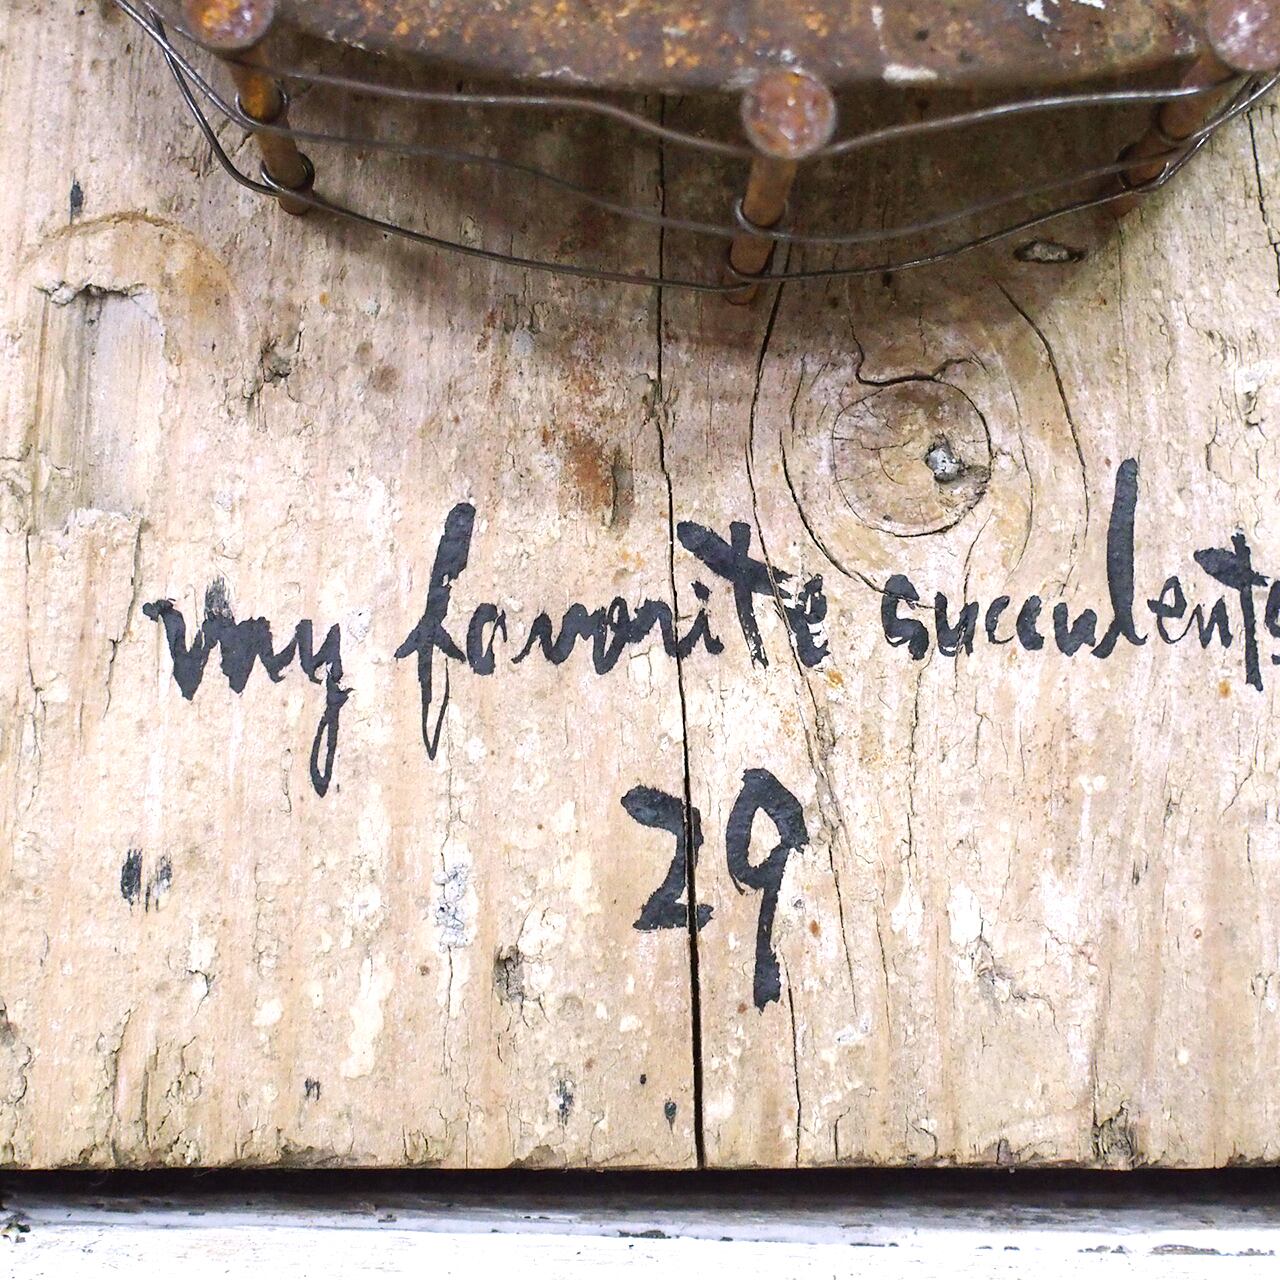 my favorite succulents
29